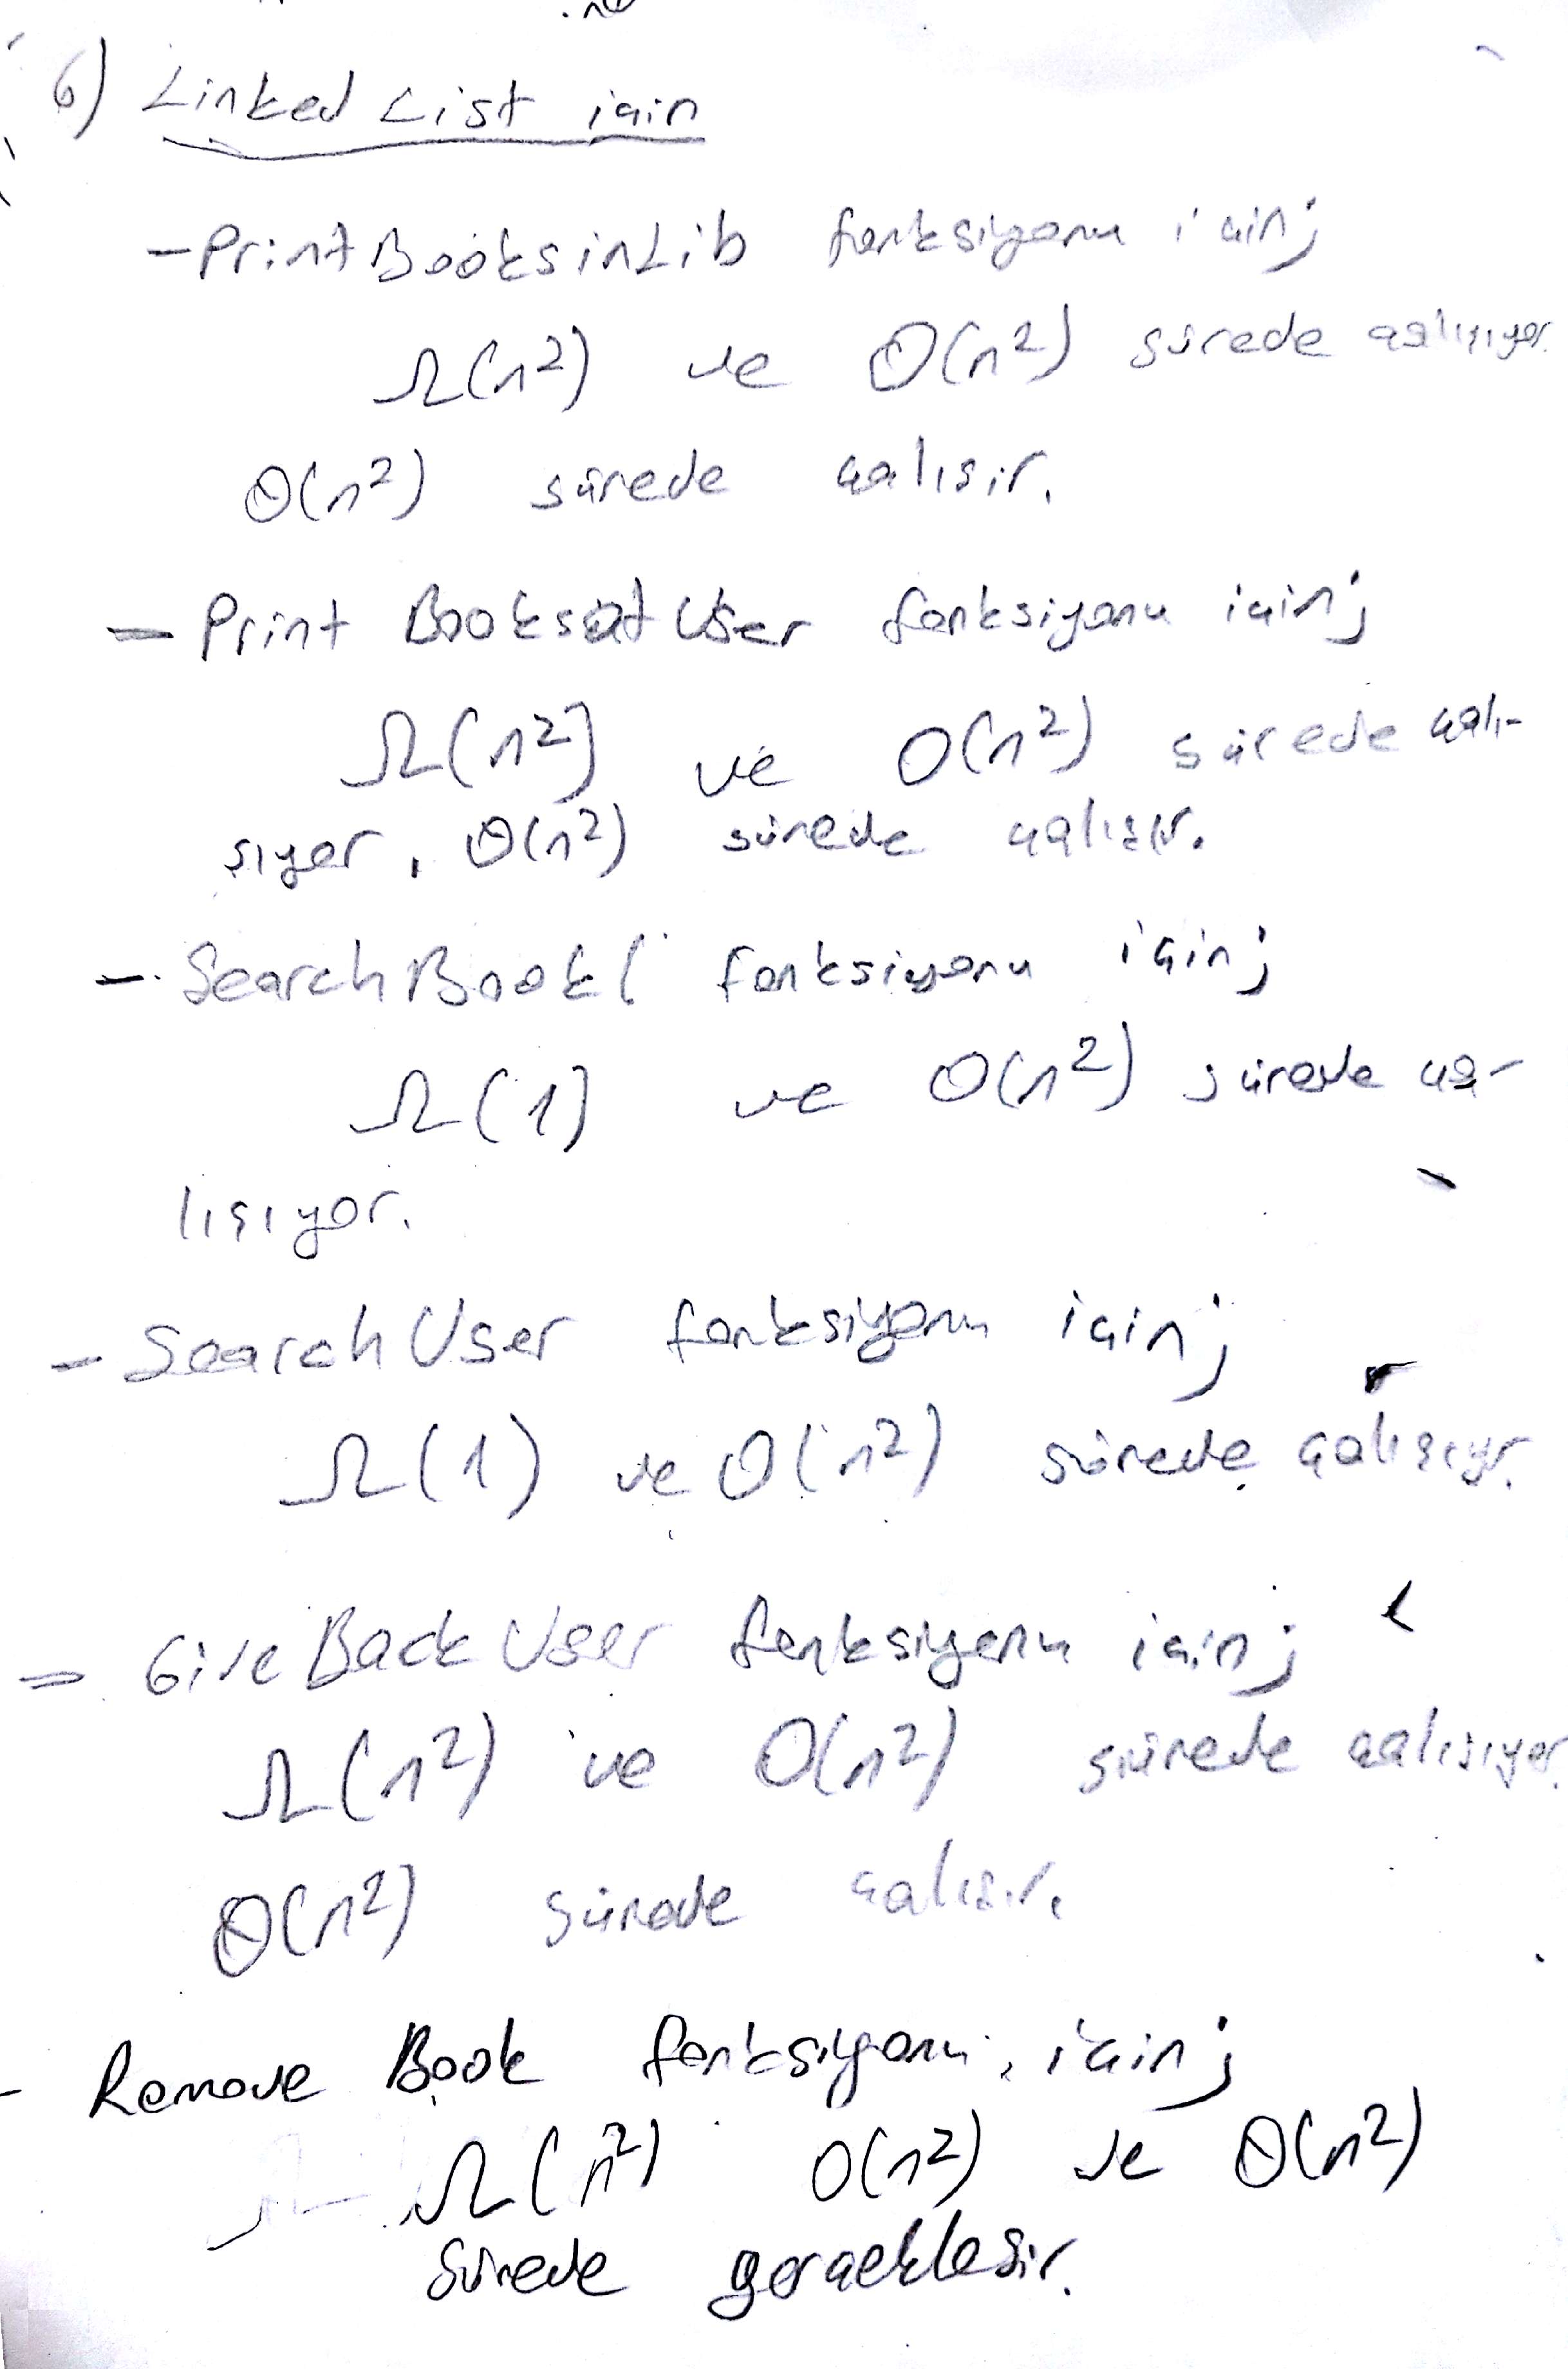 6) Linked List için
- PrintBooksinLib fonksiyonu için;
Ω(n²) ve O(n²) sürede çalışıyor.
Θ(n²) sürede çalışır.
- Print BooksatUser fonksiyonu için;
Ω(n²) ve O(n²) sürede çalı-
şıyor, Θ(n²) sürede çalışır.
- SearchBook( fonksiyonu için;
Ω(1) ve O(n²) sürede ça-
lışıyor.
- SearchUser fonksiyonu için;
Ω(1) ve O(n²) sürede çalışıyr.
- GiveBackUser fonksiyonu için;
Ω(n²) ve O(n²) sürede çalışıyor.
Θ(n²) sürede çalışır.
- Remove Book fonksiyonu, için;
Ω(n²) O(n²) ve Θ(n²)
sürede gerçekleşir.